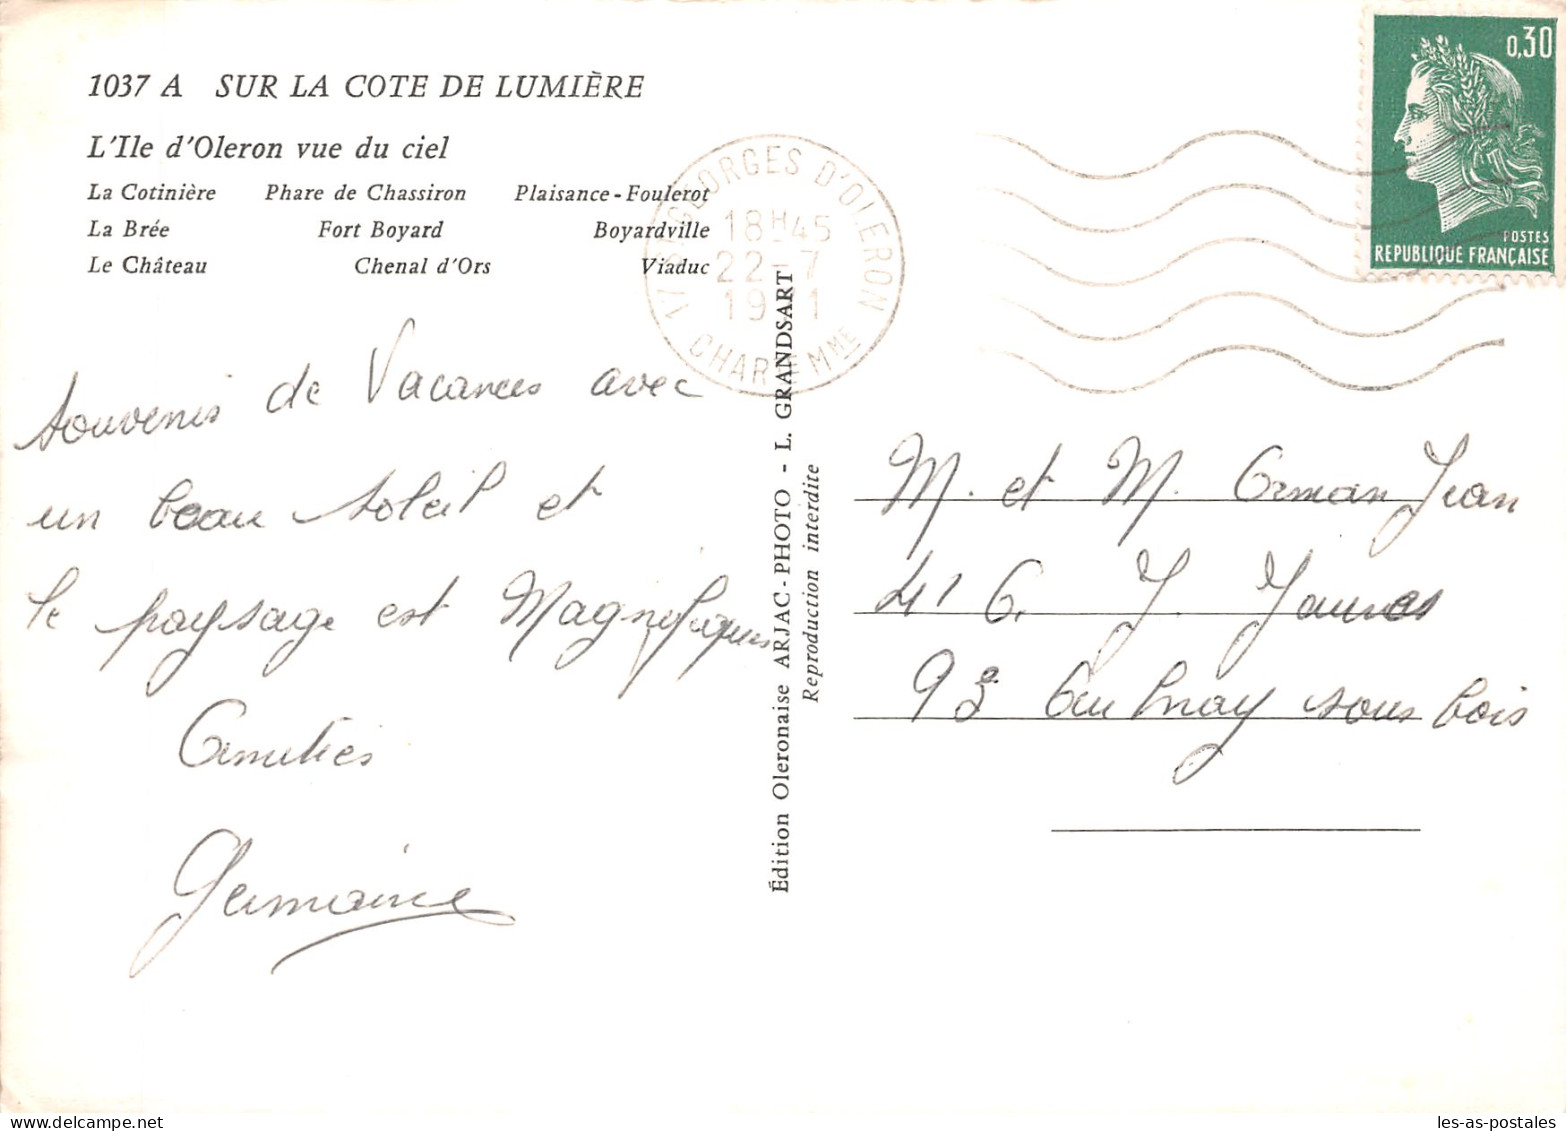 1037 A SUR LA COTE DE LUMIÈRE
L'Ile d'Oleron vue du ciel
La Cotinière Phare de Chassiron Plaisance - Foulerot
La Brée Fort Boyard Boyardville
Le Château Chenal d'Ors Viaduc
0,30
POSTES
REPUBLIQUE FRANÇAISE
17 St GEORGES D'OLERON
18H45
22-7
1971
CHARTE MME
Souvenirs de Vacances avec
un beau soleil et
le paysage est Magnifiques
Amitiés
Germaine
Édition Oleronaise ARJAC - PHOTO - L. GRANDSART
Reproduction interdite
M. et M. Orman Jean
41 J. Jaures
93 Aulnay sous bois
les-as-postales